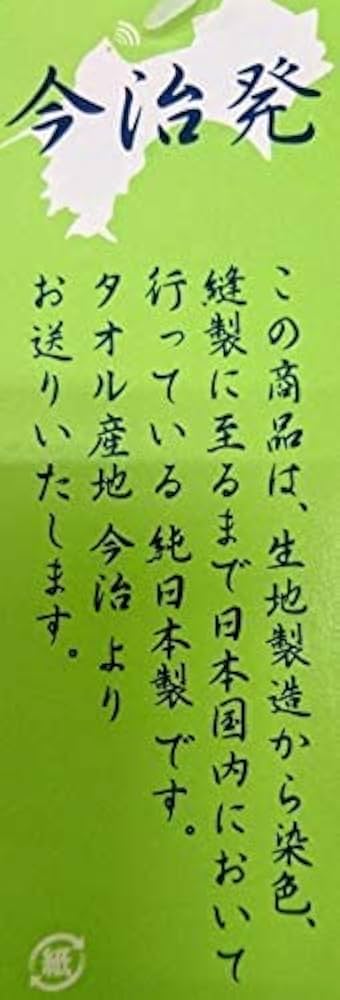 今治発
この商品は、生地製造から染色、
縫製に至るまで日本国内において
行っている 純日本製 です。
タオル産地 今治 より
お送りいたします。
紙